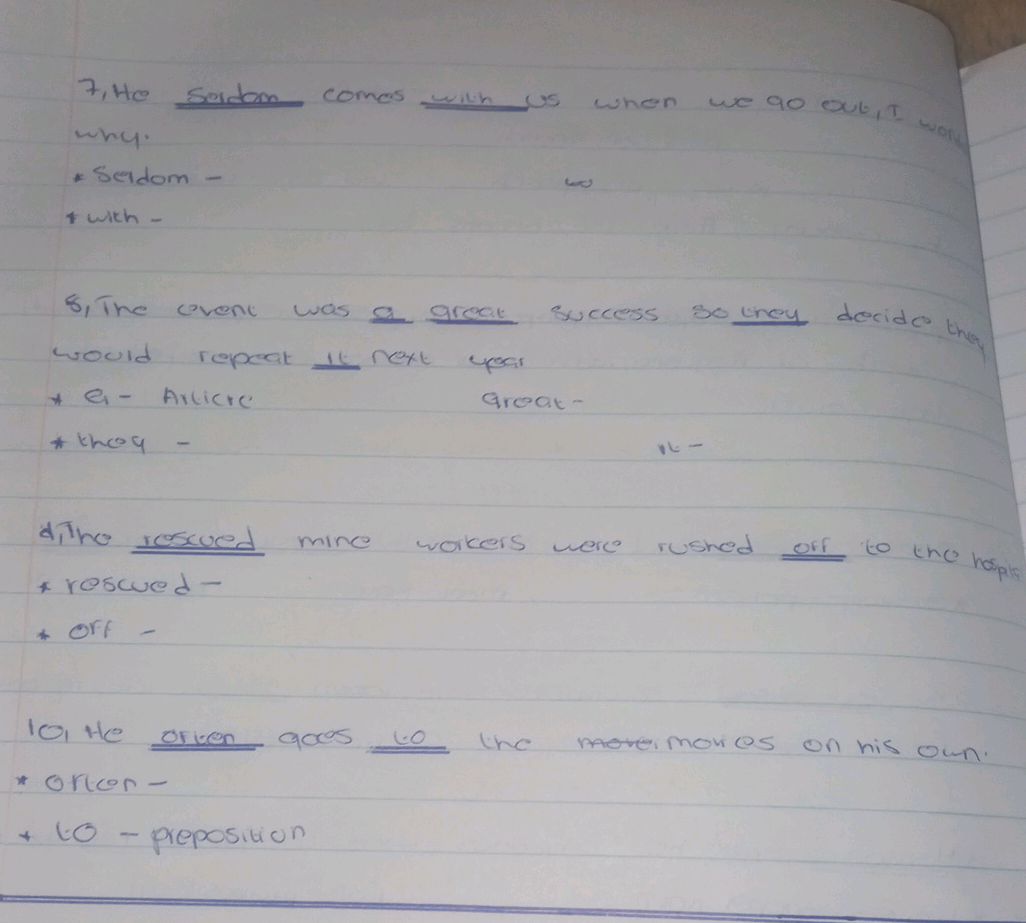 7, He seldom comes with us when we go out, I
why.
* Seldom -
* with -
8, The event was a great success so they decide they
would repeat it next year
* a - Article Great -
* they - it -
9, The rescued mine workers were rushed off to the
* rescued -
* off -
10, He often goes to the movies on his own.
* often -
* to - preposition